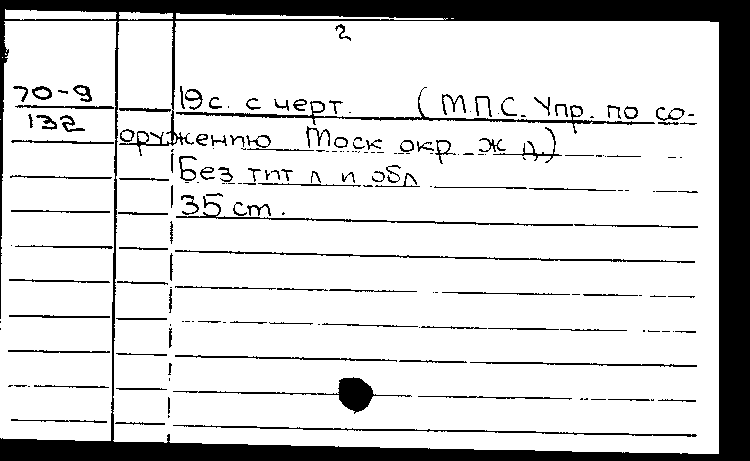 2
70-9
132
19с. с черт. (М.П.С. Упр. по со-
оружению Моск окр ж д.)
Без тит л и обл
35 см.